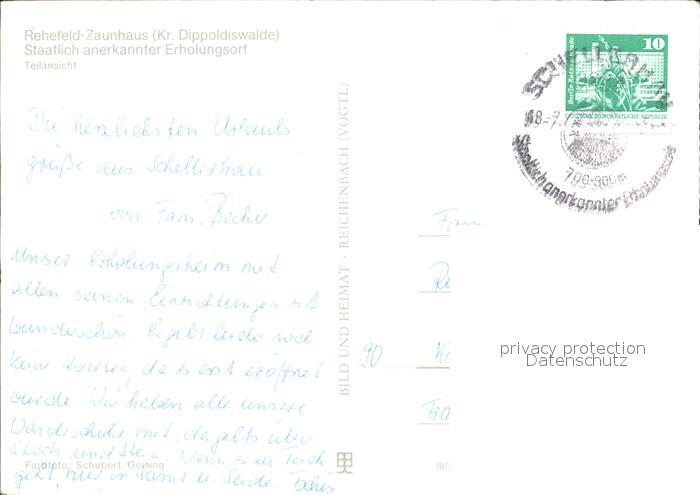 Rehefeld-Zaunhaus (Kr. Dippoldiswalde)
Staatlich anerkannter Erholungsort
Teilansicht
Die herzlichsten Urlaubs
grüße aus Schellerhau
von Fam. Becher
Unser Erholungsheim mit
allen seinen Einrichtungen ist
wunderschön. Es gibt leider noch
keine Karten, da es erst eröffnet
wurde. Wir haben alle unsere
Wanderschuhe mit, da gehts über
Stock und Stein. Wenn es zu Tisch
geht, nur in Samt u. Seide.
Farbfoto: Schubert, Geising
BILD UND HEIMAT · REICHENBACH (VOGTL)
III/
Berlin, Rathausstraße
10
DEUTSCHE DEMOKRATISCHE REPUBLIK
SCHELLERHAU
18.-7.
700-800m
Staatlich anerkannter Erholungsort
90
privacy protection
Datenschutz